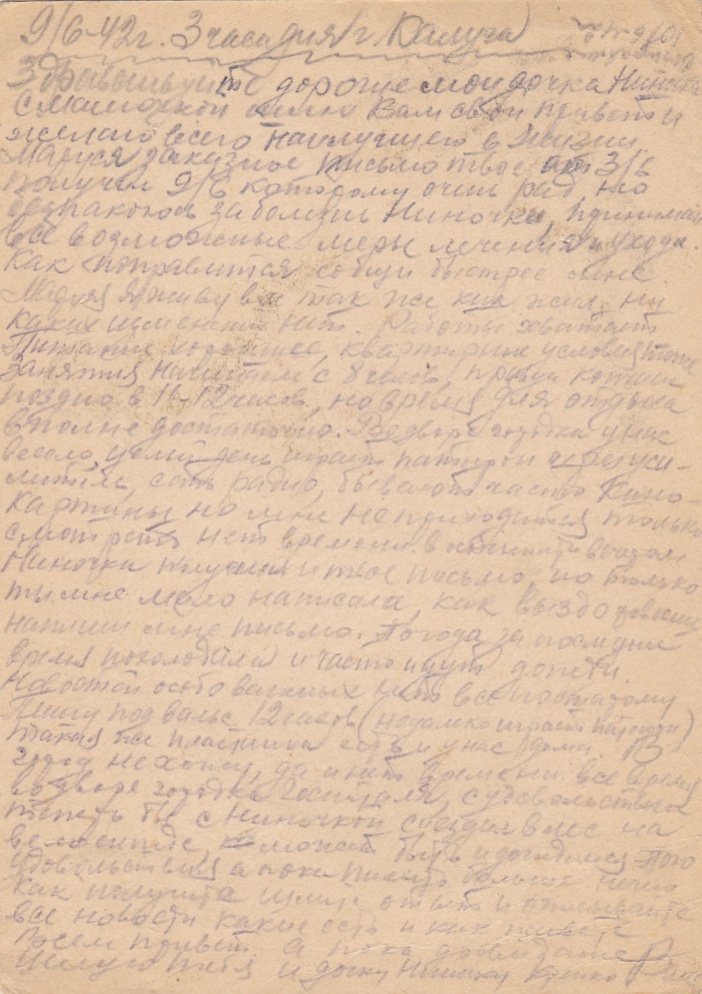 9/6-42г. 3 часа дня г. Калуга
Здравствуйте дорогие мои дочка Ниночка
с мамочкой шлю Вам свой привет и
желаю всего наилучшего в жизни.
Маруся заказное письмо твое от 3/6
получил 9/6 которому очень рад, но
беспакоюсь за болезнь Ниночки, принимай
все возможные меры лечения и ухода.
Как поправится сообщи быстрее мне.
Маруся я живу все так же как жил, ни
каких изменений нет. Работы хватает
Питание хорошее, квартирные условия тоже
Занятия начинаем с 8 часов, правда кончаем
поздно в 11-12 часов, но время для отдыха
вполне достаточно. Во дворе городка у нас
весело, целый день играет патифон через уси-
литель, есть радио, бывают часто Кино-
картины но мне не приходится только
смотреть нет времени в особенности вечером
Ниночка получил и твое письмо, но только
ты мне мало написала, как выздоровеешь
напиши мне письмо. Погода за последнее
время похолодала и часто идут дожди.
Новостей особо важных нет все по старому
Пишу под вальс 12 часов (недалеко играет патефон)
такая же пластинка есть и у нас дома. В
город не хожу, да и нет времени все время
во дворе городка госпиталя, с удовольствием
теперь бы с Ниночкой съездил в лес на
велосипеде, может быть и дождемся того
удовольствия а пока писать больше нечего
Как получите шлите ответ и описывайте
все новости какие есть и как живете
Всем привет а пока досвидание
Целую тебя и дочку Ниночку крепко